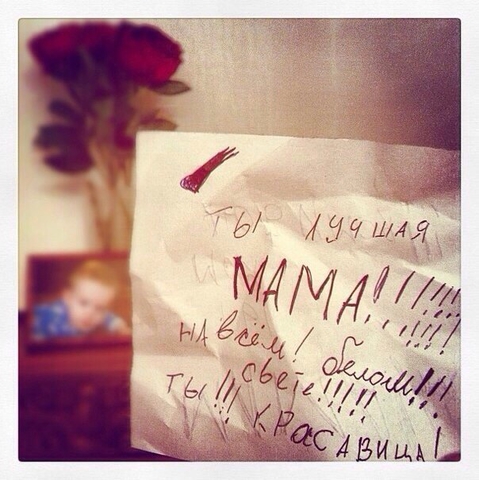 ТЫ ЛУЧШАЯ
МАМА!!!!!!!!!
НА всём! белом!!!
свете!!!!!
ТЫ!!! КРАСАВИЦА!